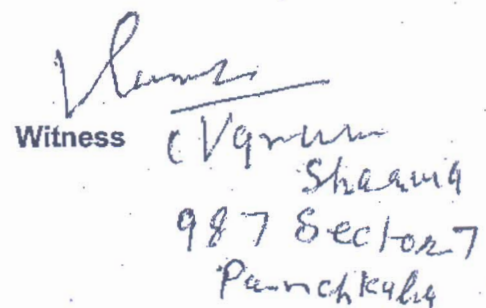 Witness (Varun
Sharma
987 Sector 7
Panchkula